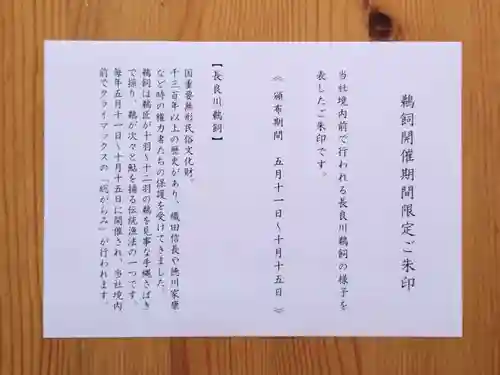 鵜飼開催期間限定ご朱印
当社境内前で行われる長良川鵜飼の様子を
表したご朱印です。
《 頒布期間　五月十一日～十月十五日 》
【長良川鵜飼】
国重要無形民俗文化財。
千三百年以上の歴史があり、織田信長や徳川家康
など時の権力者たちの保護を受けてきました。
鵜飼は鵜匠が十羽～十二羽の鵜を見事な手縄さばき
で操り、鵜が次々と鮎を捕る伝統漁法の一つです。
毎年五月十一日～十月十五日に開催され、当社境内
前でクライマックスの「総がらみ」が行われます。